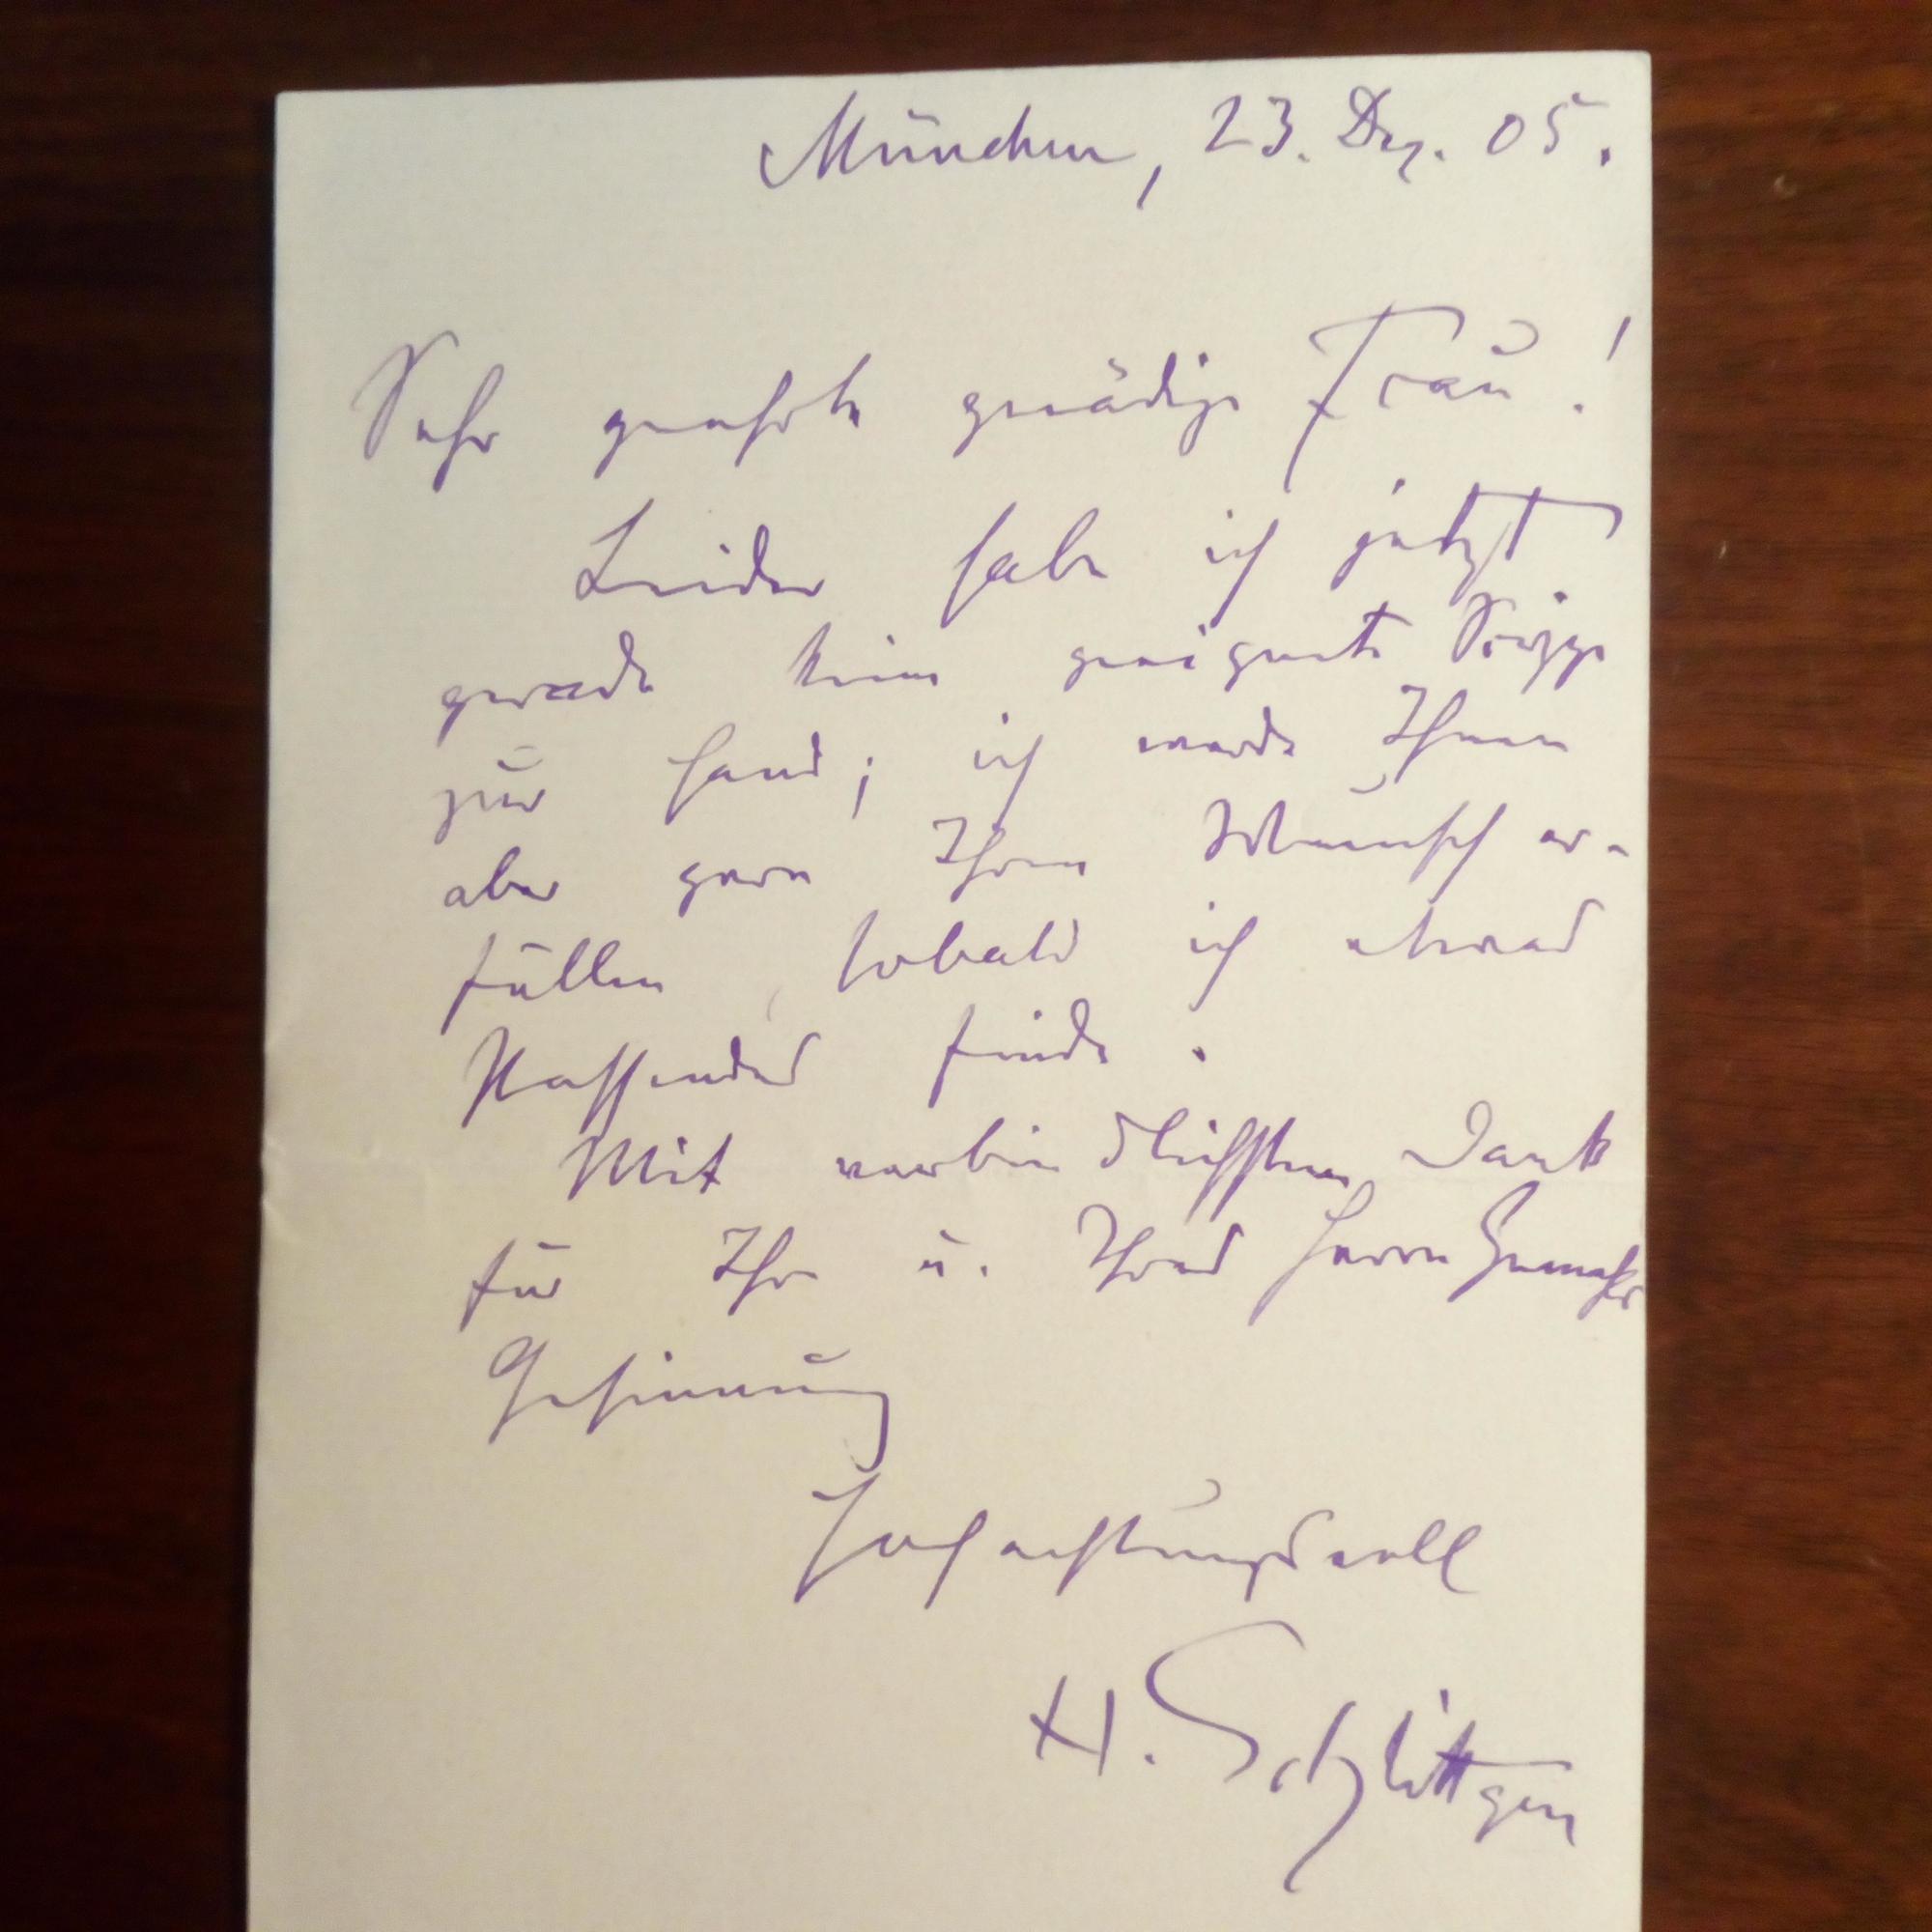 München, 23. Dez. 05.
Sehr geehrte gnädige Frau!
Leider habe ich jetzt
gerade keine geeignete Skizze
zur Hand; ich werde Ihnen
aber gern Ihren Wunsch er-
füllen sobald ich etwas
Passendes finde.
Mit verbindlichstem Dank
für Ihre u. Ihres Herrn Gemahls
Gesinnung
Hochachtungsvoll
H. Schlittgen